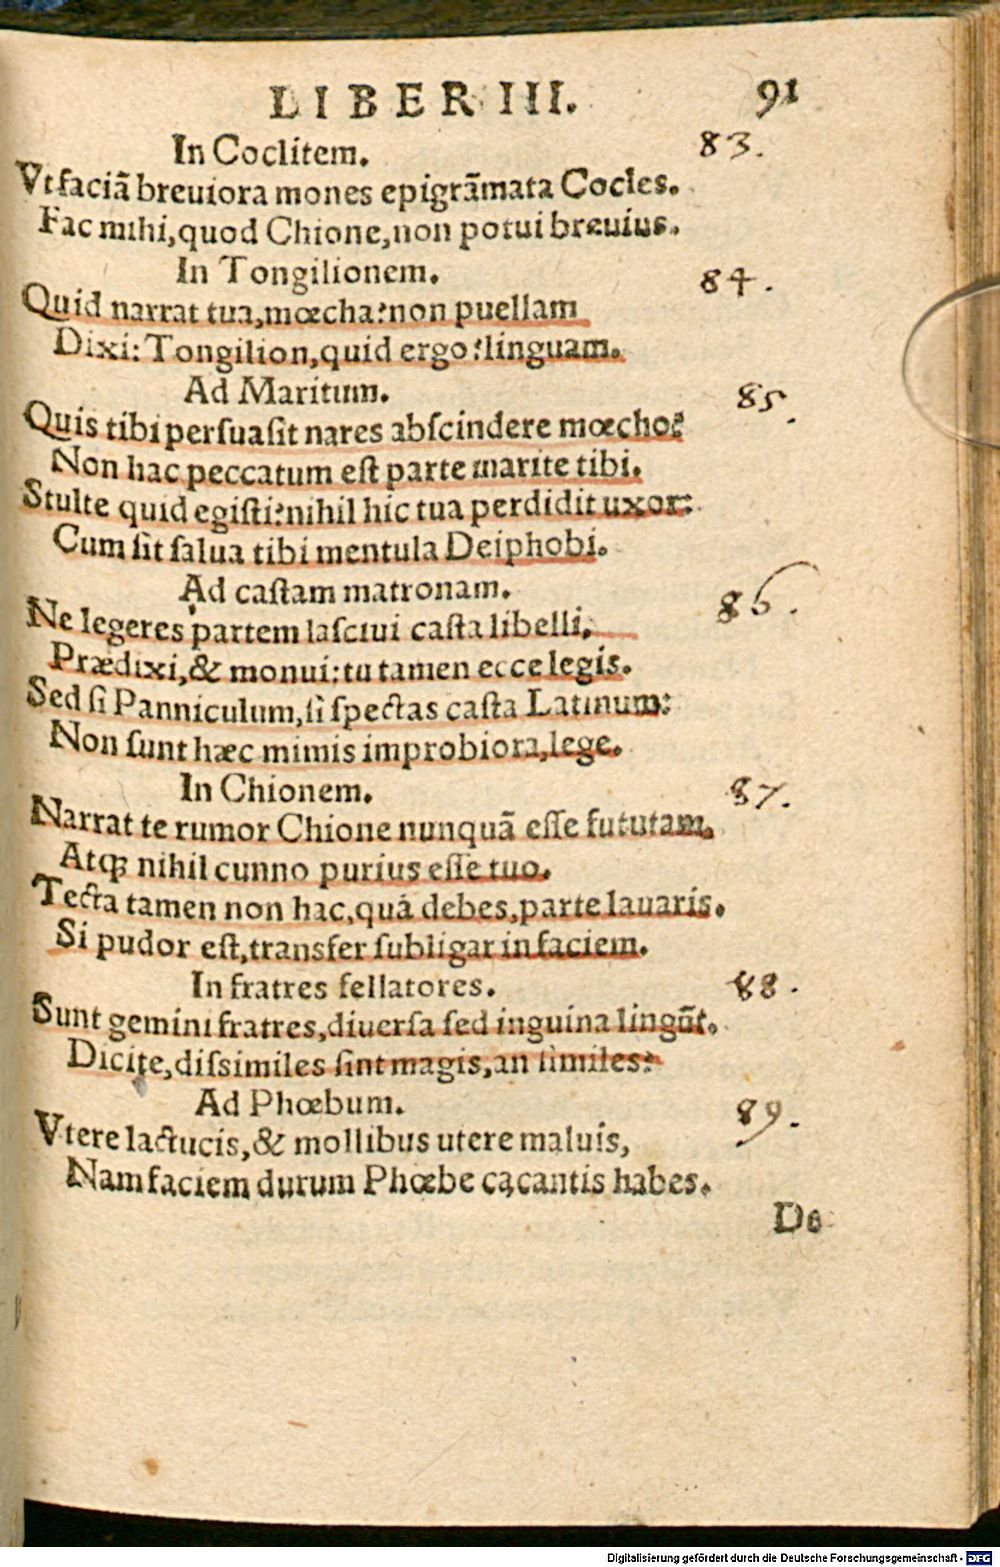 LIBER III. 91
In Coclitem. 83.
Vt faciã breuiora mones epigrãmata Cocles.
Fac mihi, quod Chione, non potui breuius.
In Tongilionem. 84.
Quid narrat tua, mœcha? non puellam
Dixi: Tongilion, quid ergo? linguam.
Ad Maritum. 85.
Quis tibi persuasit nares abscindere mœcho?
Non hac peccatum est parte marite tibi.
Stulte quid egisti? nihil hic tua perdidit uxor:
Cum sit salua tibi mentula Deiphobi.
Ad castam matronam. 86.
Ne legeres partem lasciui casta libelli,
Prædixi, & monui: tu tamen ecce legis.
Sed si Panniculum, si spectas casta Latinum:
Non sunt hæc mimis improbiora, lege.
In Chionem. 87.
Narrat te rumor Chione nunquã esse fututam.
Atq; nihil cunno purius esse tuo.
Tecta tamen non hac, quá debes, parte lauaris.
Si pudor est, transfer subligar in faciem.
In fratres fellatores. 88.
Sunt gemini fratres, diuersa sed inguina lingũt.
Dicite, dissimiles sint magis, an similes?
Ad Phœbum. 89.
Vtere lactucis, & mollibus utere maluis,
Nam faciem durum Phœbe cacantis habes.
De
Digitalisierung gefördert durch die Deutsche Forschungsgemeinschaft - DFG